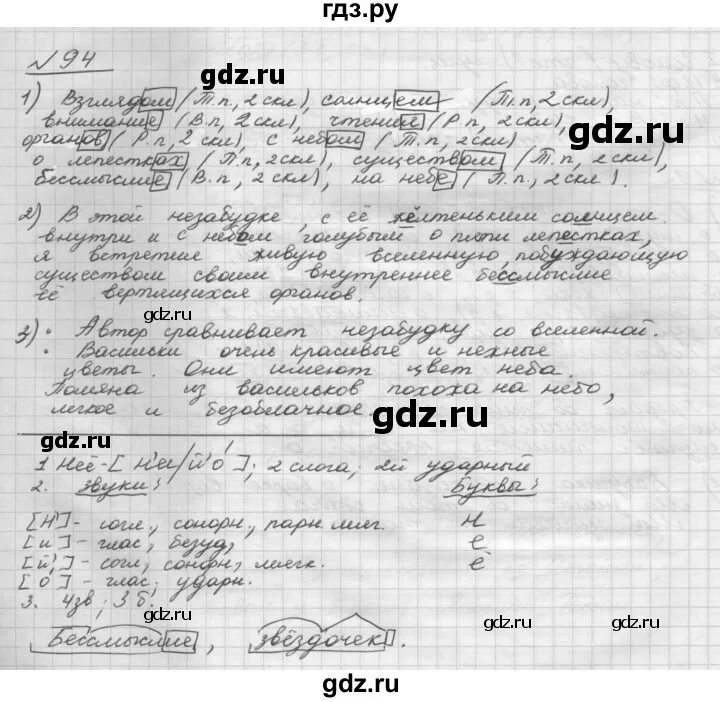 гдз.ру
№94
1) Взглядом (Т.п, 2 скл), солнцем (Т.п, 2 скл),
внимание (В.п, 2 скл), чтение (Р.п, 2 скл),
органов (Р.п, 2 скл), с небом (Т.п, 2 скл)
о лепестках (П.п, 2 скл), существом (Т.п, 2 скл),
бессмыслие (В.п, 2 скл), на небе (П.п, 2 скл).
2) В этой незабудке, с её жёлтеньким солнцем
внутри и с небом голубым о пяти лепестках,
я встретил живую вселенную, побуждающую
существом своим внутреннее бессмыслие
её вертящихся органов.
3) • Автор сравнивает незабудку со вселенной.
• Васильки очень красивые и нежные
цветы. Они имеют цвет неба.
Поляна из васильков похожа на небо,
легкое и безоблачное.
1. Неё - [н'и/й'о́]; 2 слога, 2й ударный
2. звуки: Буквы:
[н'] - согл., сонорн., парн. мяг. н
[и] - глас, безуд, е
[й'] - согл, сонорн, мягк. ё
[о́] - глас, ударн.
3. 4зв; 3 б.
Бессмыслие, звёздочек.
gdz.ru
gdz.ru
gdz.ru
gdz.ru
gdz.ru
gdz.ru
gdz.ru
gdz.ru
gdz.ru
gdz.ru
gdz.ru
gdz.ru
gdz.ru
gdz.ru